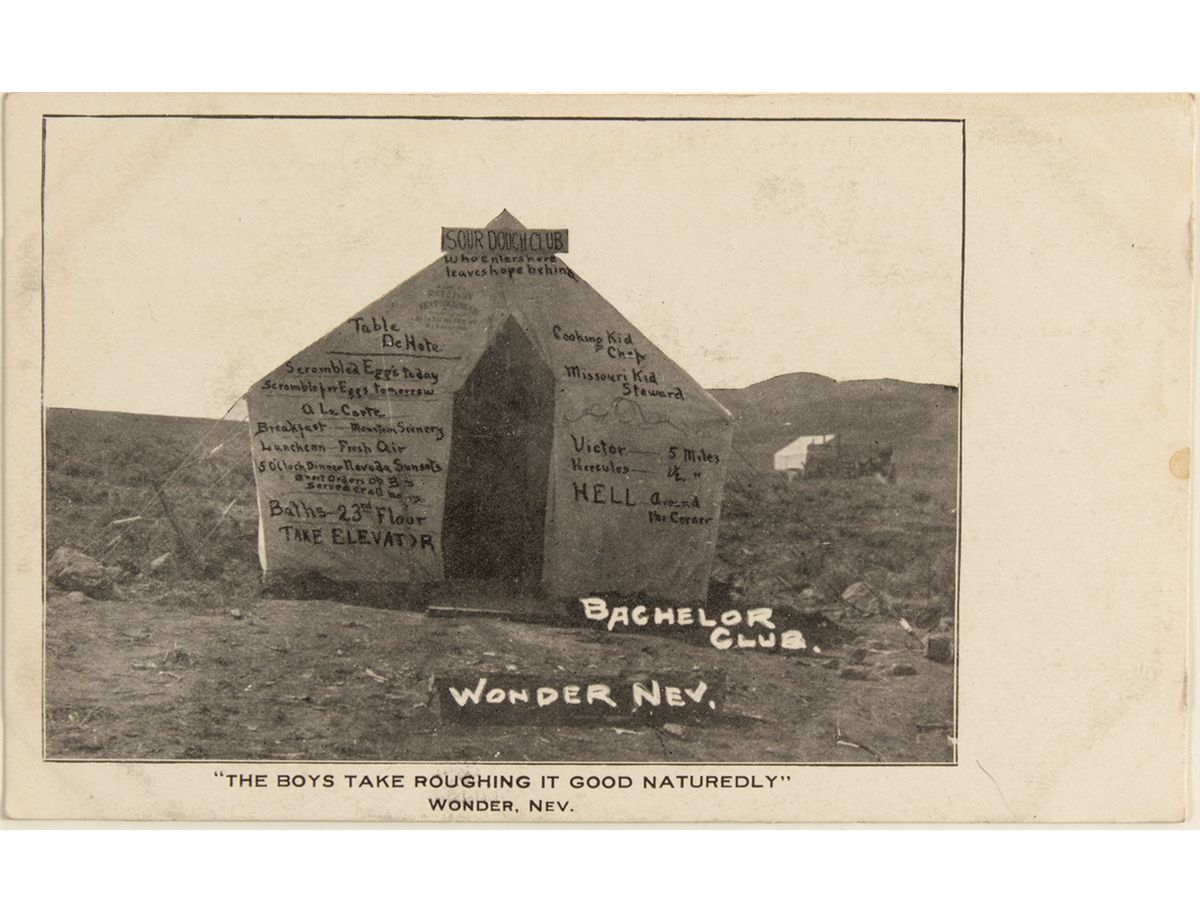 SOUR DOUGH CLUB
Who Enters here
leaves hope behind
Table
De Hote
Scrambled Egg's today
Scramble for Eggs tomorrow
A La Carte
Breakfast — Mountain Scenery
Luncheon — Fresh Air
5 O'Cloch Dinner Nevada Sunsets
Short Orders
Served
Baths — 23rd Flour
TAKE ELEVATOR
Cooking Kid
Chef
Missouri Kid
Steward
Victor — 5 Miles
Hercules — 1½ "
HELL Around
the Corner
BACHELOR
CLUB.
WONDER NEV.
"THE BOYS TAKE ROUGHING IT GOOD NATUREDLY"
WONDER, NEV.